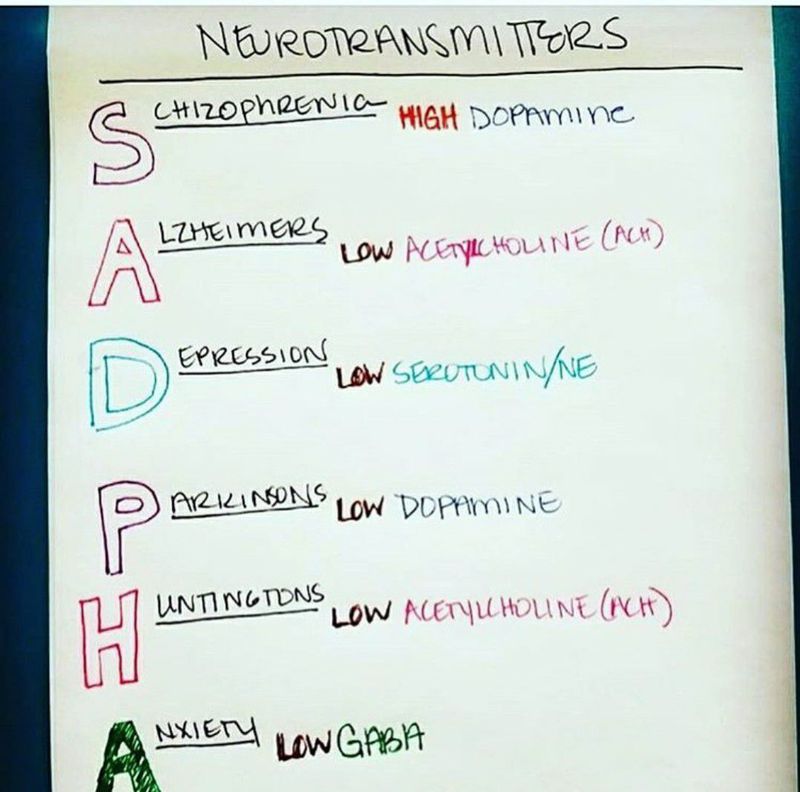 NEUROTRANSMITTERS
SCHIZOPHRENIA HIGH DOPAMINE
ALZHEIMERS LOW ACETYLCHOLINE (ACH)
DEPRESSION LOW SEROTONIN/NE
PARKINSONS LOW DOPAMINE
HUNTINGTONS LOW ACETYLCHOLINE (ACH)
ANXIETY LOW GABA